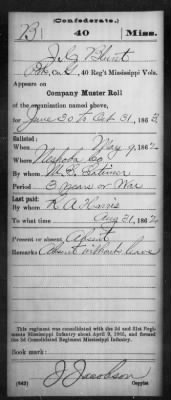 (Confederate.)
B 40 Miss.
J. G. Blunt
Pvt, Co. , 40 Reg't Mississippi Vols.
Appears on
Company Muster Roll
of the organization named above,
for June 30 to Oct 31, 1862
Enlisted:
When May 9, 1862
Where Neshoba Co
By whom
Period 3 years or War
Last paid:
By whom R A Harris
To what time Aug 31, 1862
Present or absent Absent
Remarks Absent without leave
This regiment was consolidated with the 3d and 31st Regiments Mississippi Infantry about April 9, 1865, and formed the 3d Consolidated Regiment Mississippi Infantry.
Book mark:
J Jacobson
(642) Copyist